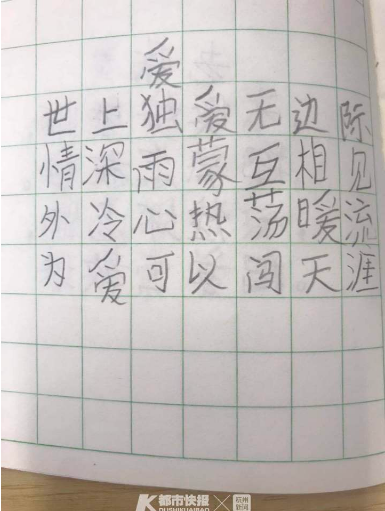 爱
世上独爱无边际
情深雨蒙互相见
外冷心热荡暖流
为爱可以闯天涯
K都市快报 × 杭州新闻
DUSHIKUAIBAO